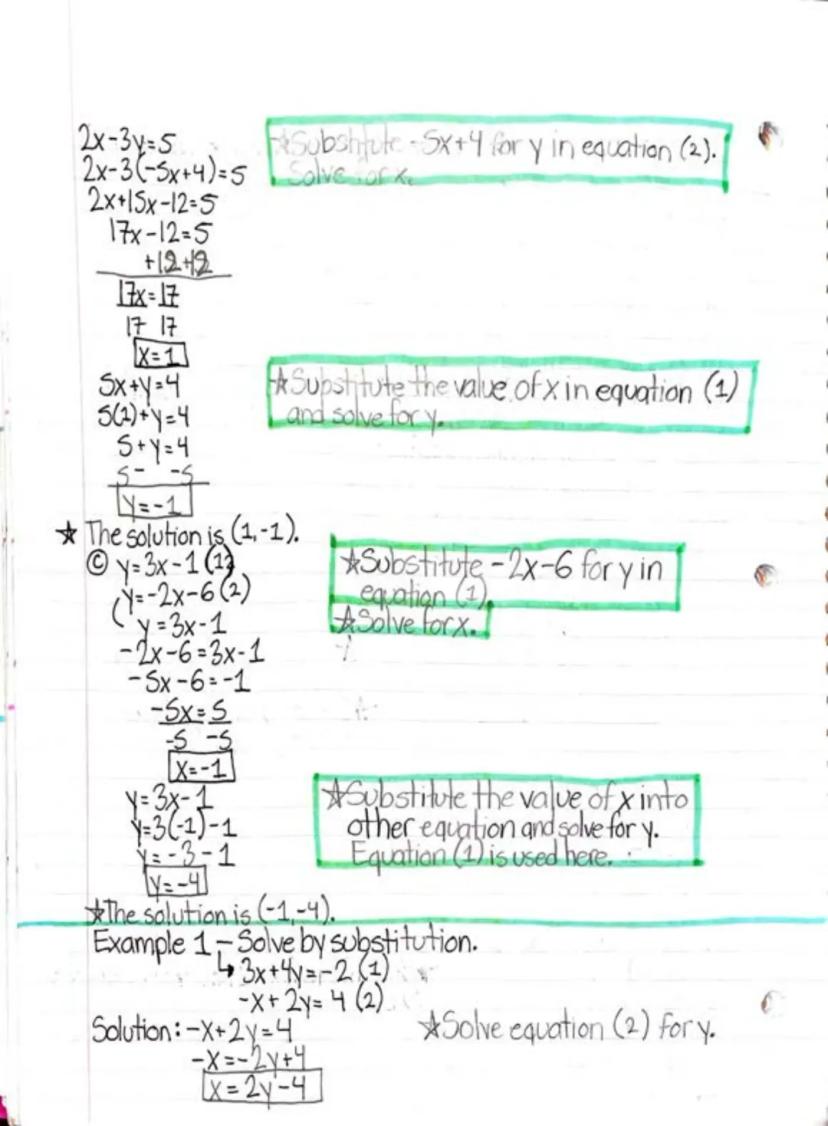 2x-3y=5
2x-3(-5x+4)=5
2x+15x-12=5
17x-12=5
+12+12
17x=17
17 17
x=1
☆Substitute -5x+4 for y in equation (2).
Solve for x.
5x+y=4
5(1)+y=4
5+y=4
5- -5
y=-1
☆Substitute the value of x in equation (1)
and solve for y.
☆ The solution is (1,-1).
© y=3x-1 (1)
y=-2x-6 (2)
y=3x-1
-2x-6=3x-1
-5x-6=-1
-5x=5
-5 -5
x=-1
☆Substitute -2x-6 for y in
equation (1)
☆Solve for x.
y=3x-1
y=3(-1)-1
y=-3-1
y=-4
☆Substitute the value of x into
other equation and solve for y.
Equation (1) is used here.
☆The solution is (-1,-4).
Example 1-Solve by substitution.
↳ 3x+4y=-2 (1)
-x+2y=4 (2)
Solution: -x+2y=4
☆Solve equation (2) for y.
-x=-2y+4
x=2y-4